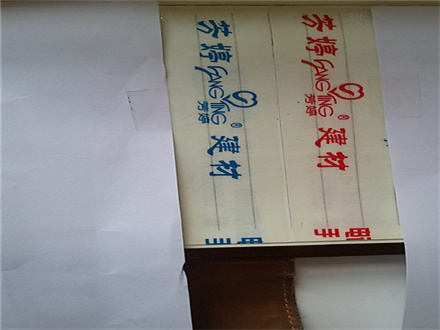 芳婷 FANGTING 芳婷 ® 建材
电
手
芳婷 FANGTING 芳婷 ® 建材